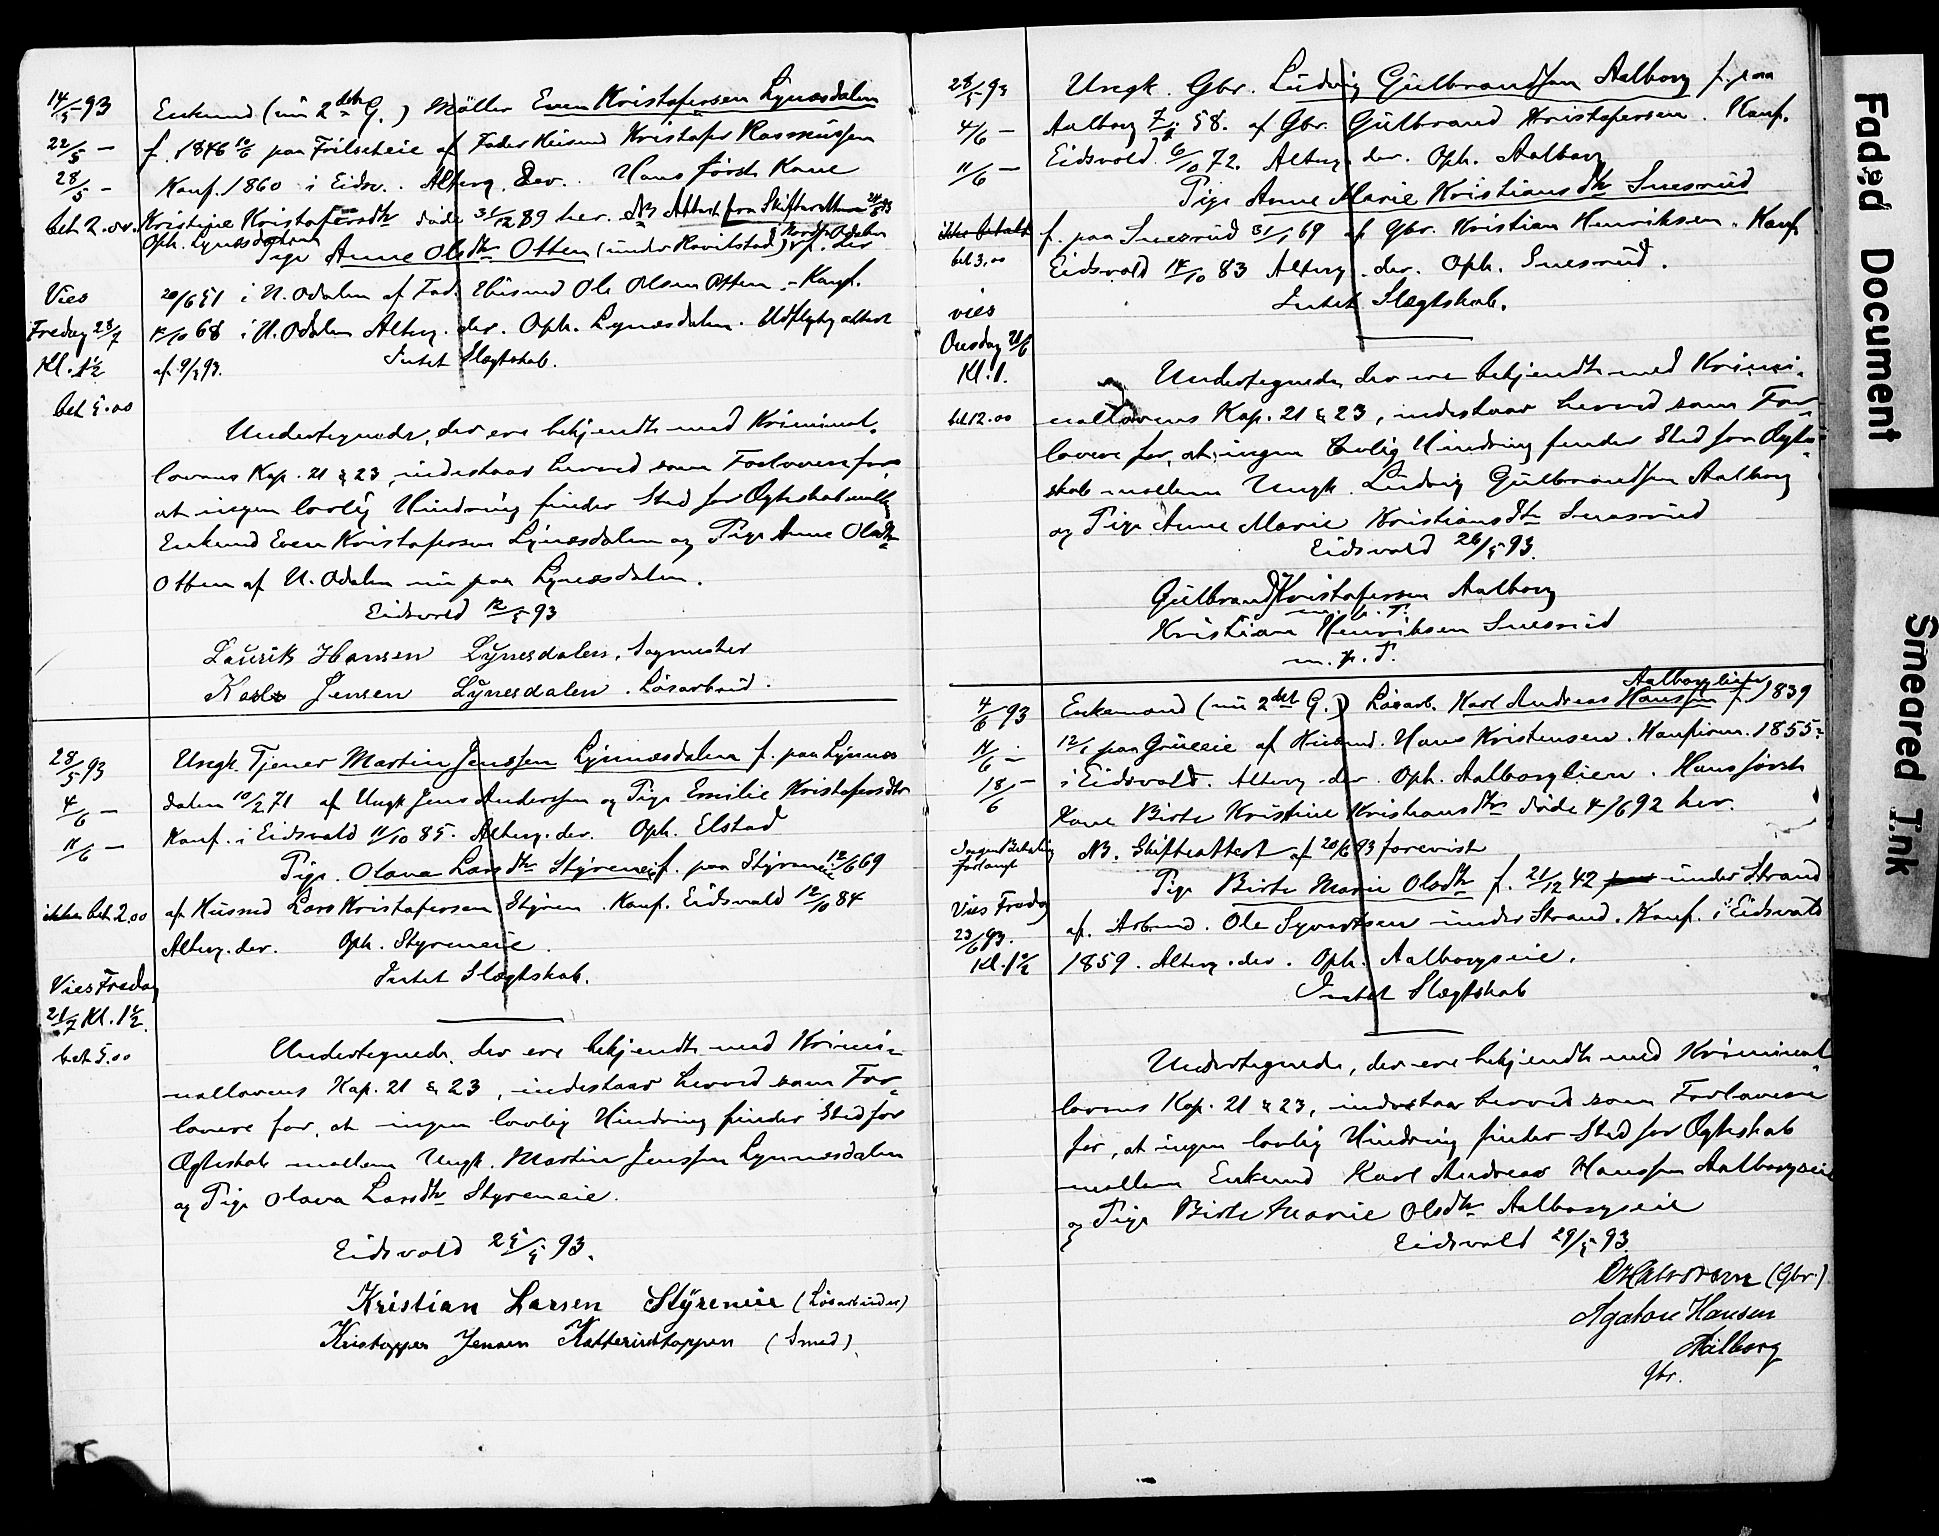 14/5 93
22/5 –
28/5 –
bet 2.00.
Vies
Fredag 28/7
Kl. 1½
bet 5.00
Enkemd (nu 2det G.) Møller Even Kristofersen Lynæsdalen
f. 1846 10/6 paa Frilseteie af Fader Husmd Kristofer Rasmussen
Konf. 1860 i Eidsv. Alterg. der. Hans første Kone
Kristine Kristofersdtr døde 31/12 89 her. NB Attest fra Skifteretten
Oph. Lynæsdalen
Pige Anne Olsdtr Otten (under Kovilstad) Nordre Odalen f. der
20/6 51 i N. Odalen af Fad. Husmd Ole Olsen Otten. – Konf.
12/10 68 i N. Odalen Alterg. der. Oph. Lynæsdalen. Udflytg attest
af 9/5 93. Intet Slægtskab.
Undertegnede, der ere bekjendte med Kriminal-
lovens Kap. 21 & 23, indestaar herved som Forlovere for,
at ingen lovlig Hindring finder Sted for Ægteskab mellem
Enkemd Even Kristofersen Lynæsdalen og Pige Anne Olsdtr
Otten af N. Odalen nu paa Lynæsdalen.
Eidsvold 12/5 93
Laurits Hansen Lynesdalen, Sagmester
Karl Jensen Lynesdalen. Løsarbeid.
28/5 93
4/6 –
11/6 –
ikke bet 2.00
Vies Fredag
21/7 Kl. 1½.
bet 5.00
Ungk. Tjener Martin Jenssen Lynnæsdalen f. paa Lynnæs
dalen 10/2 71 af Ungk Jens Anderssen og Pige Emilie Kristofersdtr
Konf. i Eidsvold 11/10 85. Alterg. der. Oph. Elstad
Pige. Olava Larsdtr Styreneie f. paa Styreneie 12/6 69
af Husmd Lars Kristofersen Styren. Konf. Eidsvold 12/10 84
Alterg. der. Oph. Styreneie.
Intet Slægtskab.
Undertegnede, der ere bekjendte med Krimi-
nallovens Kap. 21 & 23, indestaar herved som For-
lovere for, at ingen lovlig Hindring finder Sted for
Ægteskab mellem Ungk. Martin Jenssen Lynnæsdalen
og Pige Olava Larsdtr Styreneie.
Eidsvold 25/5 93.
Kristian Larsen Styreneie (Løsarbeider)
Kristoppen Jensen Katterudtoppen (Smed).
28/5 93
4/6 –
11/6 –
ikke betalt
bet 3,00
vies
Onsdag 21/6
Kl. 1.
bet 12.00
Ungk. Gbr. Ludvig Gulbrandssen Aalborg f. paa
Aalborg 58. af Gbr. Gulbrand Kristofersen. Konf.
Eidsvold 6/10 72. Alterg. der. Oph. Aalborg
Pige Anne Marie Kristiansdtr Snesrud
f. paa Snesrud 31/1 69 af Gbr. Kristian Henriksen. Konf.
Eidsvold 14/10 83 Alterg. der. Oph. Snesrud.
Intet Slægtskab.
Undertegnede, der ere bekjendte med Krimi-
nallovens Kap. 21 & 23, indestaar herved som For-
lovere for, at ingen lovlig Hindring finder Sted for Ægte-
skab mellem Ungk. Ludvig Gulbrandssen Aalborg
og Pige Anne Marie Kristiansdtr Snesrud
Eidsvold 26/5 93.
Gulbrand Kristofersen Aalborg
m. p. P.
Kristian Henriksen Snesrud
m. p. P.
4/6 93
11/6 –
18/6 –
Ingen Betaling
forlangt
Vies Fredag
23/6 93.
Kl. 1½
Enkemand (nu 2det G.) Løsarb. Karl Andreas Hanssen Aalborglien f. 1839
12/1 paa Grueeie af Husmd. Hans Kristensen. Konfirm. 1855
i Eidsvold. Alterg. der. Oph. Aalborglien. Hans første
Kone Birte Kristine Kristiansdtr døde 4/6 92 her.
NB. Skifteattest af 20/6 93 forevist
Pige Birte Marie Olsdtr f. 21/12 42 under Strand
af Arbmd. Ole Syvertsen under Strand. Konf. i Eidsvold
1859. Alterg. der. Oph. Aalborgseie.
Intet Slægtskab
Undertegnede, der ere bekjendte med Kriminal-
lovens Kap. 21 & 23, indestaar herved som Forlovere
for, at ingen lovlig Hindring finder Sted for Ægteskab
mellem Enkemd Karl Andreas Hanssen Aalborgseie
og Pige Birte Marie Olsdtr Aalborgseie
Eidsvold 29/5 93.
O Halvorsen (Gbr.)
Agaton Hansen
Aalborg
Gbr.
Faded Document
Smeared Ink